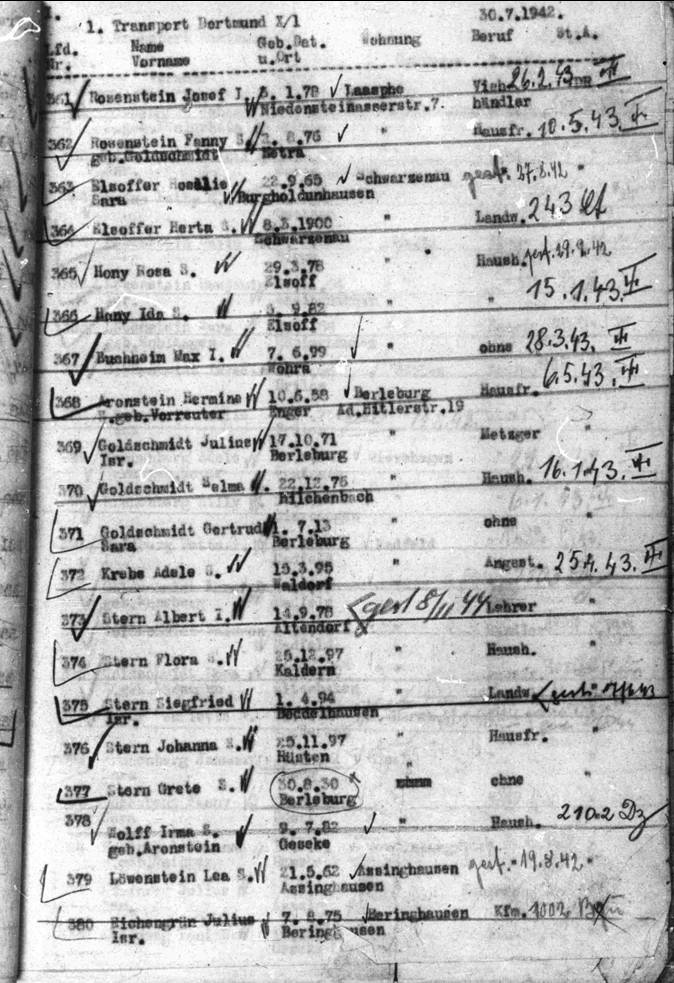 1. Transport Dortmund X/1 30.7.1942.
Lfd. Name Geb.Dat. Wohnung Beruf St.A.
Nr. Vorname u.Ort
361 Rosenstein Josef I. 3. 1.78 Laasphe Vieh 26.2.43
Niedensteinasserstr.7. händler
362 Rosenstein Fanny S. 8.76 " Hausfr. 10.5.43.
geb.Goldschmidt Netra
363 Elsoffer Rosalie 22.9.65 Schwarzenau gest. 27.8.42 "
Sara Burgholdunhausen
364 Elsoffer Herta S. 8.3.1900 " Landw. 243
Schwarzenau
365 Hony Rosa S. 29.3.78 " Haush. gest. 29.9.42
Elsoff
366 Hony Ida S. 3. 9.82 " " 15.1.43.
Elsoff
367 Buchheim Max I. 7. 6.99 " ohne 28.3.43.
Wohra
368 Aronstein Hermine 10.6.58 Berleburg Hausfr. 6.5.43.
S.geb.Vorreuter Enger Ad.Hitlerstr.19
369 Goldschmidt Julius 17.10.71 " Metzger "
Isr. Berleburg
370 Goldschmidt Selma 22.12.76 " Haush. 16.1.43.
Hilchenbach
371 Goldschmidt Gertrud 1. 7.13 " ohne "
Sara Berleburg
372 Krebs Adele S. 15.3.95 " Angest. 254.43.
Waldorf
373 Stern Albert I. 14.9.78 gest 8/11 44 Lehrer "
Altendorf
374 Stern Flora S. 26.12.97 " Haush. "
Kaldern
375 Stern Siegfried 1. 4.94 " Landw. gest.
Isr. Beddelhausen
376 Stern Johanna S. 25.11.97 " Hausfr. "
Hüsten
377 Stern Grete S. 30.8.30 ohne "
Berleburg
378 Wolff Irma S. 9. 7.82 " Haush. 2102 Dz
geb.Aronstein Geseke
379 Löwenstein Lea S. 21.5.62 Assinghausen gest. 19.8.42 "
Assinghausen
380 Eichengrün Julius 7. 8.75 Beringhausen Kfm. 1002
Isr. Beringhausen